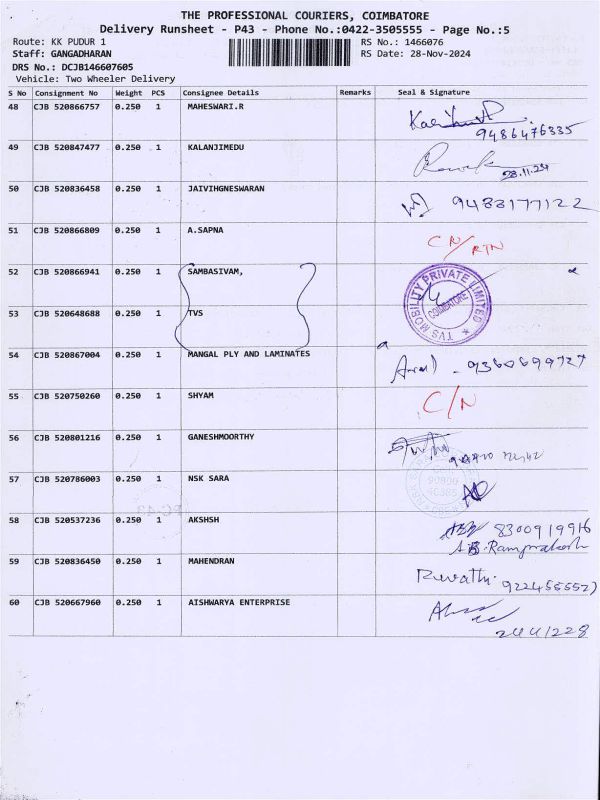 THE PROFESSIONAL COURIERS, COIMBATORE
Delivery Runsheet - P43 - Phone No.:0422-3505555 - Page No.:5
Route: KK PUDUR 1
RS No.: 1466076
Staff: GANGADHARAN
RS Date: 28-Nov-2024
DRS No.: DCJB146607605
Vehicle: Two Wheeler Delivery
S No Consignment No Weight PCS Consignee Details Remarks Seal & Signature
48 CJB 520866757 0.250 1 MAHESWARI.R
9486476335
49 CJB 520847477 0.250 1 KALANJIMEDU
28.11.24
50 CJB 520836458 0.250 1 JAIVIHGNESWARAN 9488177122
51 CJB 520866809 0.250 1 A.SAPNA C/N/RTN
52 CJB 520866941 0.250 1 SAMBASIVAM,
TVS MOBILITY PRIVATE LIMITED
COIMBATORE
53 CJB 520648688 0.250 1 TVS
54 CJB 520867004 0.250 1 MANGAL PLY AND LAMINATES
9360699727
55 CJB 520750260 0.250 1 SHYAM C/N
56 CJB 520801216 0.250 1 GANESHMOORTHY
57 CJB 520786003 0.250 1 NSK SARA
58 CJB 520537236 0.250 1 AKSHSH 8300919916
A.B.Ramprakash
59 CJB 520836450 0.250 1 MAHENDRAN
Revathi
60 CJB 520667960 0.250 1 AISHWARYA ENTERPRISE